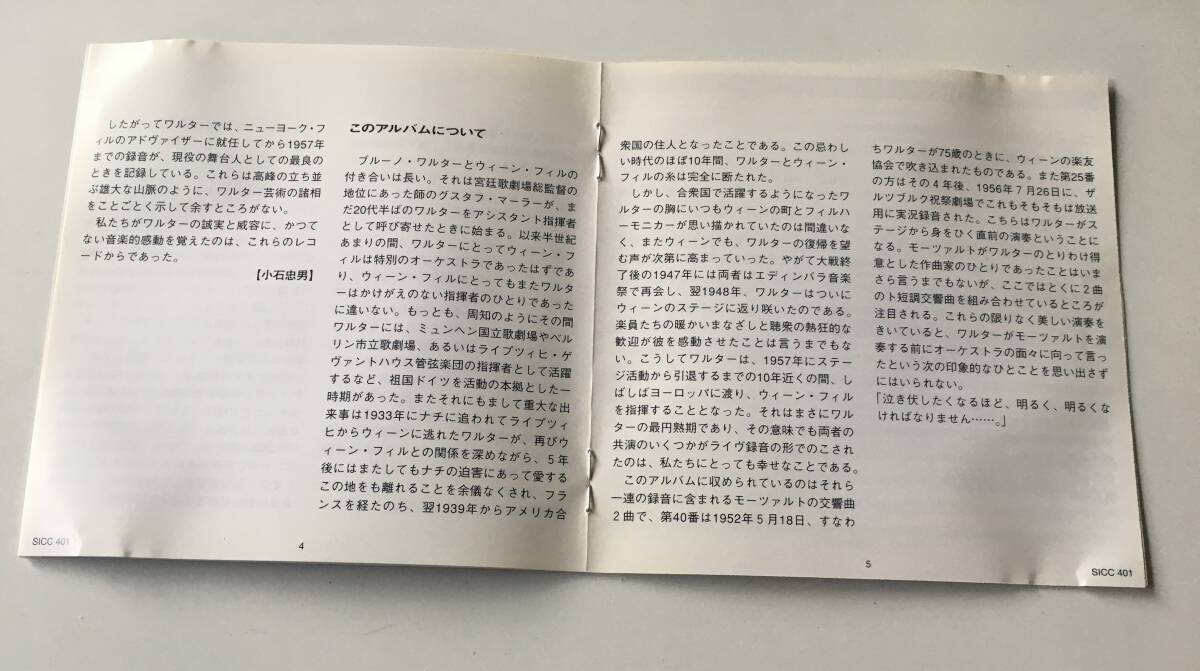 したがってワルターでは、ニューヨーク・フ
ィルのアドヴァイザーに就任してから1957年
までの録音が、現役の舞台人としての最良の
ときを記録している。これらは高峰の立ち並
ぶ雄大な山脈のように、ワルター芸術の諸相
をことごとく示して余すところがない。
私たちがワルターの誠実と威容に、かつて
ない音楽的感動を覚えたのは、これらのレコ
ードからであった。
【小石忠男】
このアルバムについて
ブルーノ・ワルターとウィーン・フィルの
付き合いは長い。それは宮廷歌劇場総監督の
地位にあった師のグスタフ・マーラーが、ま
だ20代半ばのワルターをアシスタント指揮者
として呼び寄せたときに始まる。以来半世紀
あまりの間、ワルターにとってウィーン・フ
ィルは特別のオーケストラであったはずであ
り、ウィーン・フィルにとってもまたワルタ
ーはかけがえのない指揮者のひとりであった
に違いない。もっとも、周知のようにその間
ワルターには、ミュンヘン国立歌劇場やベル
リン市立歌劇場、あるいはライプツィヒ・ゲ
ヴァントハウス管弦楽団の指揮者として活躍
するなど、祖国ドイツを活動の本拠とした一
時期があった。またそれにもまして重大な出
来事は1933年にナチに追われてライプツィ
ヒからウィーンに逃れたワルターが、再びウ
ィーン・フィルとの関係を深めながら、5年
後にはまたしてもナチの迫害にあって愛する
この地をも離れることを余儀なくされ、フラ
ンスを経たのち、翌1939年からアメリカ合
SICC 401
4
衆国の住人となったことである。この忌わし
い時代のほぼ10年間、ワルターとウィーン・
フィルの糸は完全に断たれた。
しかし、合衆国で活躍するようになったワ
ルターの胸にいつもウィーンの町とフィルハ
ーモニカーが思い描かれていたのは間違いな
く、またウィーンでも、ワルターの復帰を望
む声が次第に高まっていった。やがて大戦終
了後の1947年には両者はエディンバラ音楽
祭で再会し、翌1948年、ワルターはついに
ウィーンのステージに返り咲いたのである。
楽員たちの暖かいまなざしと聴衆の熱狂的な
歓迎が彼を感動させたことは言うまでもな
い。こうしてワルターは、1957年にステー
ジ活動から引退するまでの10年近くの間、し
ばしばヨーロッパに渡り、ウィーン・フィル
を指揮することとなった。それはまさにワル
ターの最円熟期であり、その意味でも両者の
共演のいくつかがライヴ録音の形でのこされ
たのは、私たちにとっても幸せなことである。
このアルバムに収められているのはそれら
一連の録音に含まれるモーツァルトの交響曲
2曲で、第40番は1952年5月18日、すなわ
ちワルターが75歳のときに、ウィーンの楽友
協会で吹き込まれたものである。また第25番
の方はその4年後、1956年7月26日に、ザ
ルツブルク祝祭劇場でこれもそもそもは放送
用に実況録音された。こちらはワルターがス
テージから身をひく直前の演奏ということに
なる。モーツァルトがワルターのとりわけ得
意とした作曲家のひとりであったことはいま
さら言うまでもないが、ここではとくに2曲
のト短調交響曲を組み合わせているところが
注目される。これらの限りなく美しい演奏を
きいていると、ワルターがモーツァルトを演
奏する前にオーケストラの面々に向って言っ
たという次の印象的なひとことを思い出さず
にはいられない。
「泣き伏したくなるほど、明るく、明るくな
ければなりません……。」
5
SICC 401